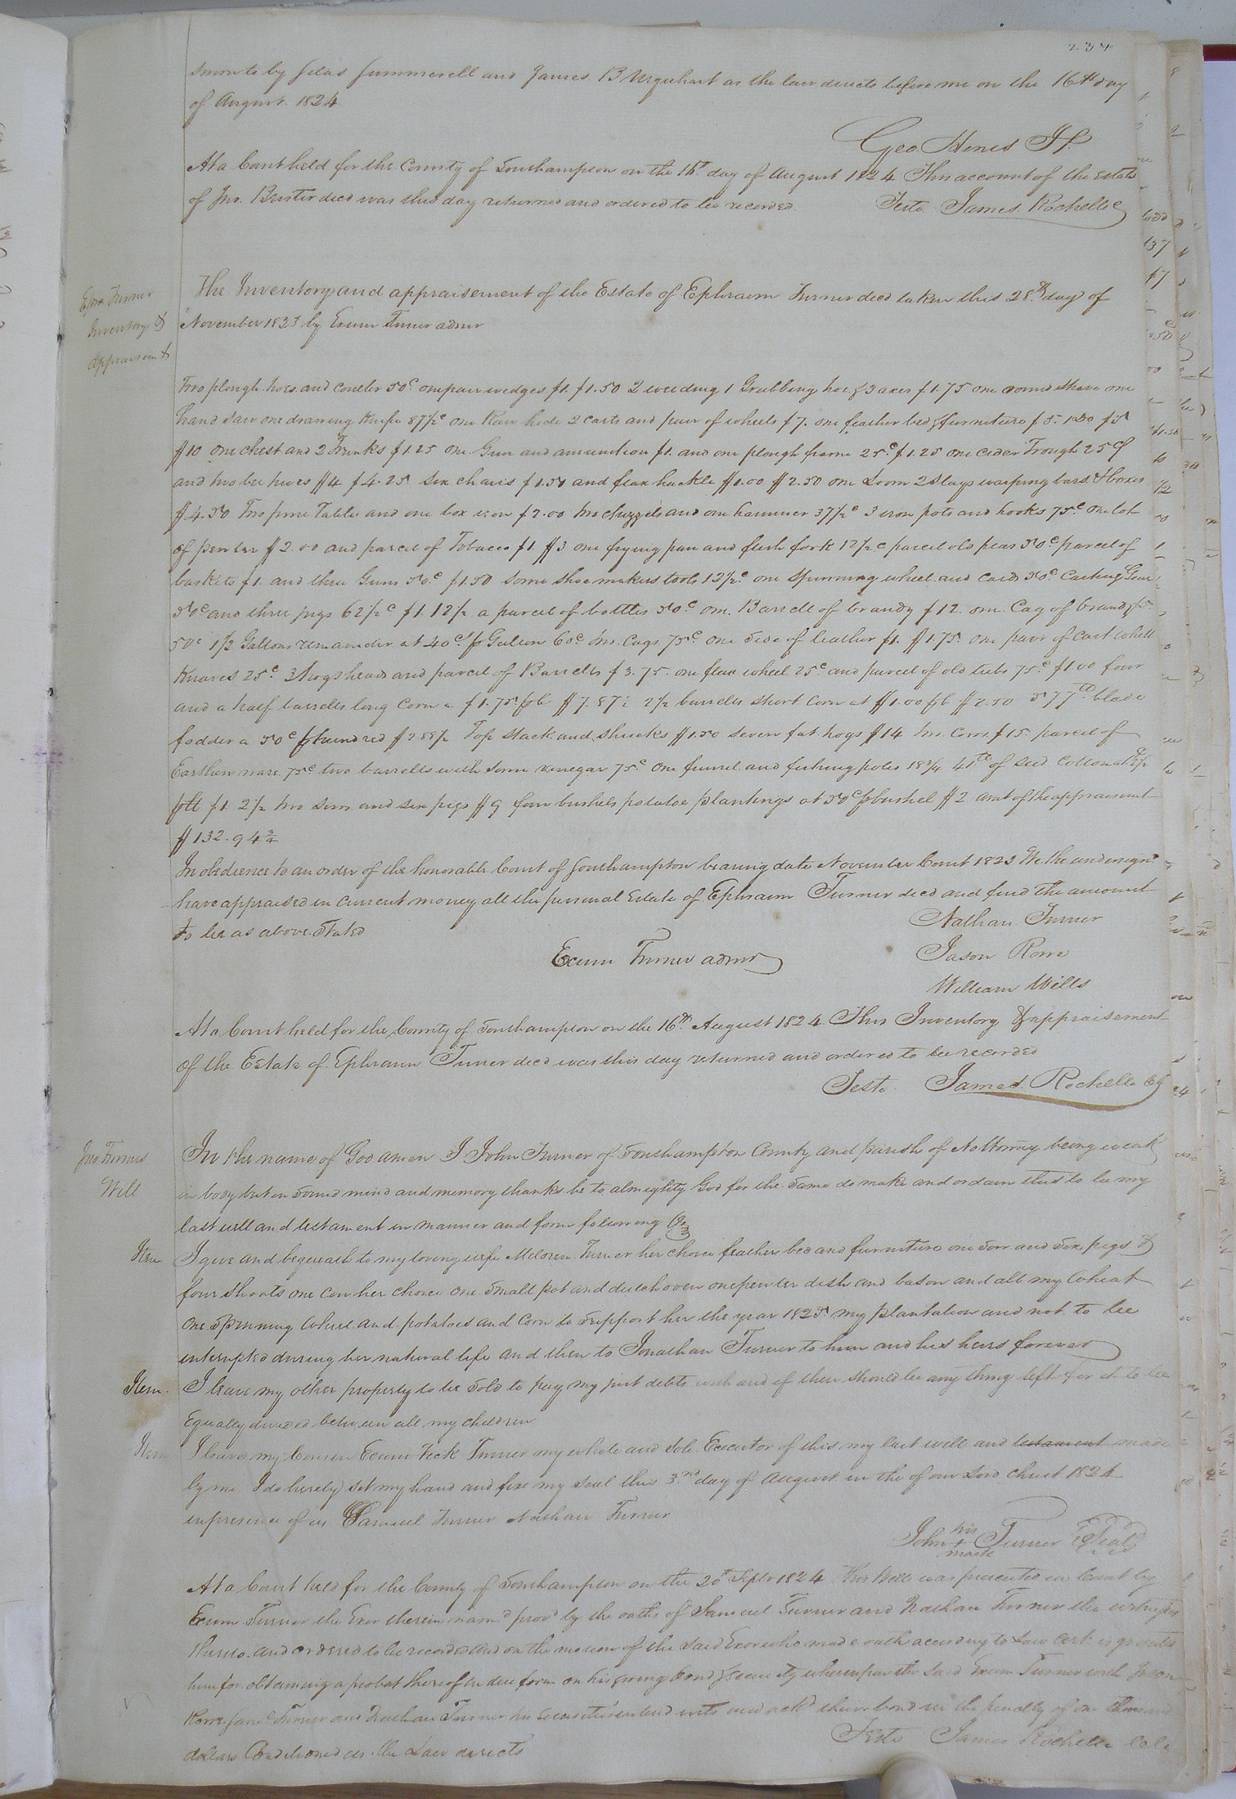 sworn to by Silas Summerell and James B Urquhart as the law directs before me on the 16th day
of August 1824
Geo Hines JP.
At a Court held for the County of Southampton on the 16th day of August 1824 This account of the Estate
of Jno. decd was this day returned and ordered to be recorded
Teste James Rochelle
Turner
Inventory &
appraisemt
The Inventory and appraisement of the Estate of Ephraim Turner decd taken this 28th day of
November 1823 by Exum Turner admr
Two plough hoes and coulter 50c one pair wedges $1. $1.50 2 weeding 1 Grubbing hoe & 3 axes $1.75 one round shave one
hand saw one drawing knife 87½c one Raw hide 2 carts and pair of wheels $7. one feather bed & furniture $5. $5
$10 one chest and 2 Trunks $1.25 one Gun and amunition $1. and one plough frame 25c $1.25 one cedar Trough 25c
and two bee hives $4 $4.25 six chairs $1.50 and flax hackle $1.00 $2.50 one Loom 2 Slays warping bars & boxes
$4.50 Two pine Table and one box iron $2.00 two chizzels and one hammer 37½c 3 iron pots and hooks 75c one lot
of pewter $2.00 and parcel of Tobacco $1 $3 one frying pan and flesh fork 12½c parcel old peas 50c parcel of
baskets $1. and three Guns 50c $1.50 Some shoe makers tools 12½c one Spinning wheel and cards 50c
50c and three jugs 62½c $1.12½ a parcel of bottles 50c one Barrell of brandy $12. one Cag of brandy
50c 1½ Gallons remainder at 40c pr Gallon 60c two Cags 75c one side of leather $1. $1.75 one pair of Cart wheel
25c 3 hogsheads and parcel of Barrells $3.75 one flax wheel 25c and parcel of old tubs 75c $1.00 four
and a half barrells long Corn a $1.75 pb $7.87½ 2½ barrells short corn at $1.00 pb $2.50 577 lb blade
fodder a 50c phundred $2.88½ Top stack and shucks $1.50 seven fat hogs $14 two Cows $15 parcel of
Earthen ware 75c two barrells with some vinegar 75c one funnel and fishing poles 18¾ 41lb of seed Cotton at
plb $1 2½ two sows and six pigs $9 four bushels potatoe plantings at 50c pbushel $2 amt of the appraisement
$132.94¾
In obedience to an order of the honorable Court of Southampton bearing date November Court 1823 We the undersignd
have appraised in current money all the personal Estate of Ephraim Turner decd and find the amount
to be as above Stated
Nathan Turner
Exum Turner admr
Jason Rowe
William Wills
At a Court held for the County of Southampton on the 16th August 1824 This Inventory & appraisement
of the Estate of Ephraim Turner decd was this day returned and ordered to be recorded
Teste. James Rochelle
Jno Turners
Will
In the name of God amen I John Turner of Southampton County and parish of Nottoway being weak
in body but in sound mind and memory thanks be to almighty God for the same do make and ordain this to be my
last will and testament in manner and form following
Item I give and bequeath to my loving wife Turner her choice feather bed and furniture one sow and six pigs &
four shoats one cow her choice one small pot and dutch oven one pewter dish and bason and all my wheat
one spinning wheel and potatoes and corn to support her the year 1825 my plantation and not to be
interupted during her natural life and then to Jonathan Turner to him and his heirs forever
Item. I leave my other property to be sold to pay my just debts with and if there should be any thing left for it to be
Equally divided between all my children
Item I leave my Cousin Exum Turner my whole and sole Executor of this my last will and testament made
by me I do hereby set my hand and fix my seal this 3rd day of August in the of our Lord christ 1824
in presence of us Samuel Turner Nathan Turner
John his + mark Turner (Seal)
At a Court held for the County of Southampton on the 20th Septr 1824 This Will was presented in Court by
Exum Turner the Exor therein named provd by the oaths of Samuel Turner and Nathan Turner the witnesses
thereto and ordered to be recorded and on the motion of the said Exor who made oath according to Law Cert is granted
him for obtaining a probat thereof in due form on his giving bond & security whereupon the said Exum Turner with Jason
Rowe Turner and Nathan Turner his securities enterd into and ackd their bond in the penalty of one thousand
dollars Conditioned as the Law directs
Teste James Rochelle